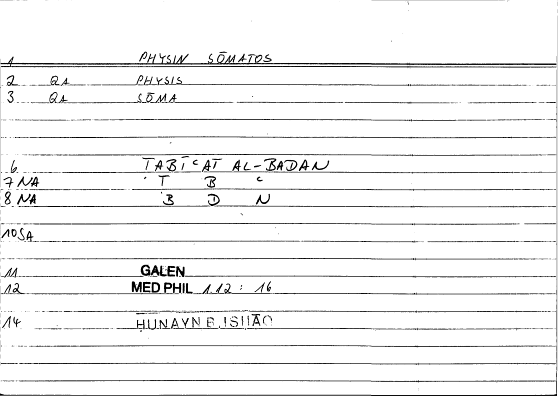 1 PHYSIN SŌMATOS
2 QA PHYSIS
3 QA SŌMA
6 ṬABĪʿAT AL-BADAN
7 NA Ṭ B ʿ
8 NA B D N
10 SA
11 GALEN
12 MED PHIL 1.12 : 16
14 ḤUNAYN B. ISḤĀQ